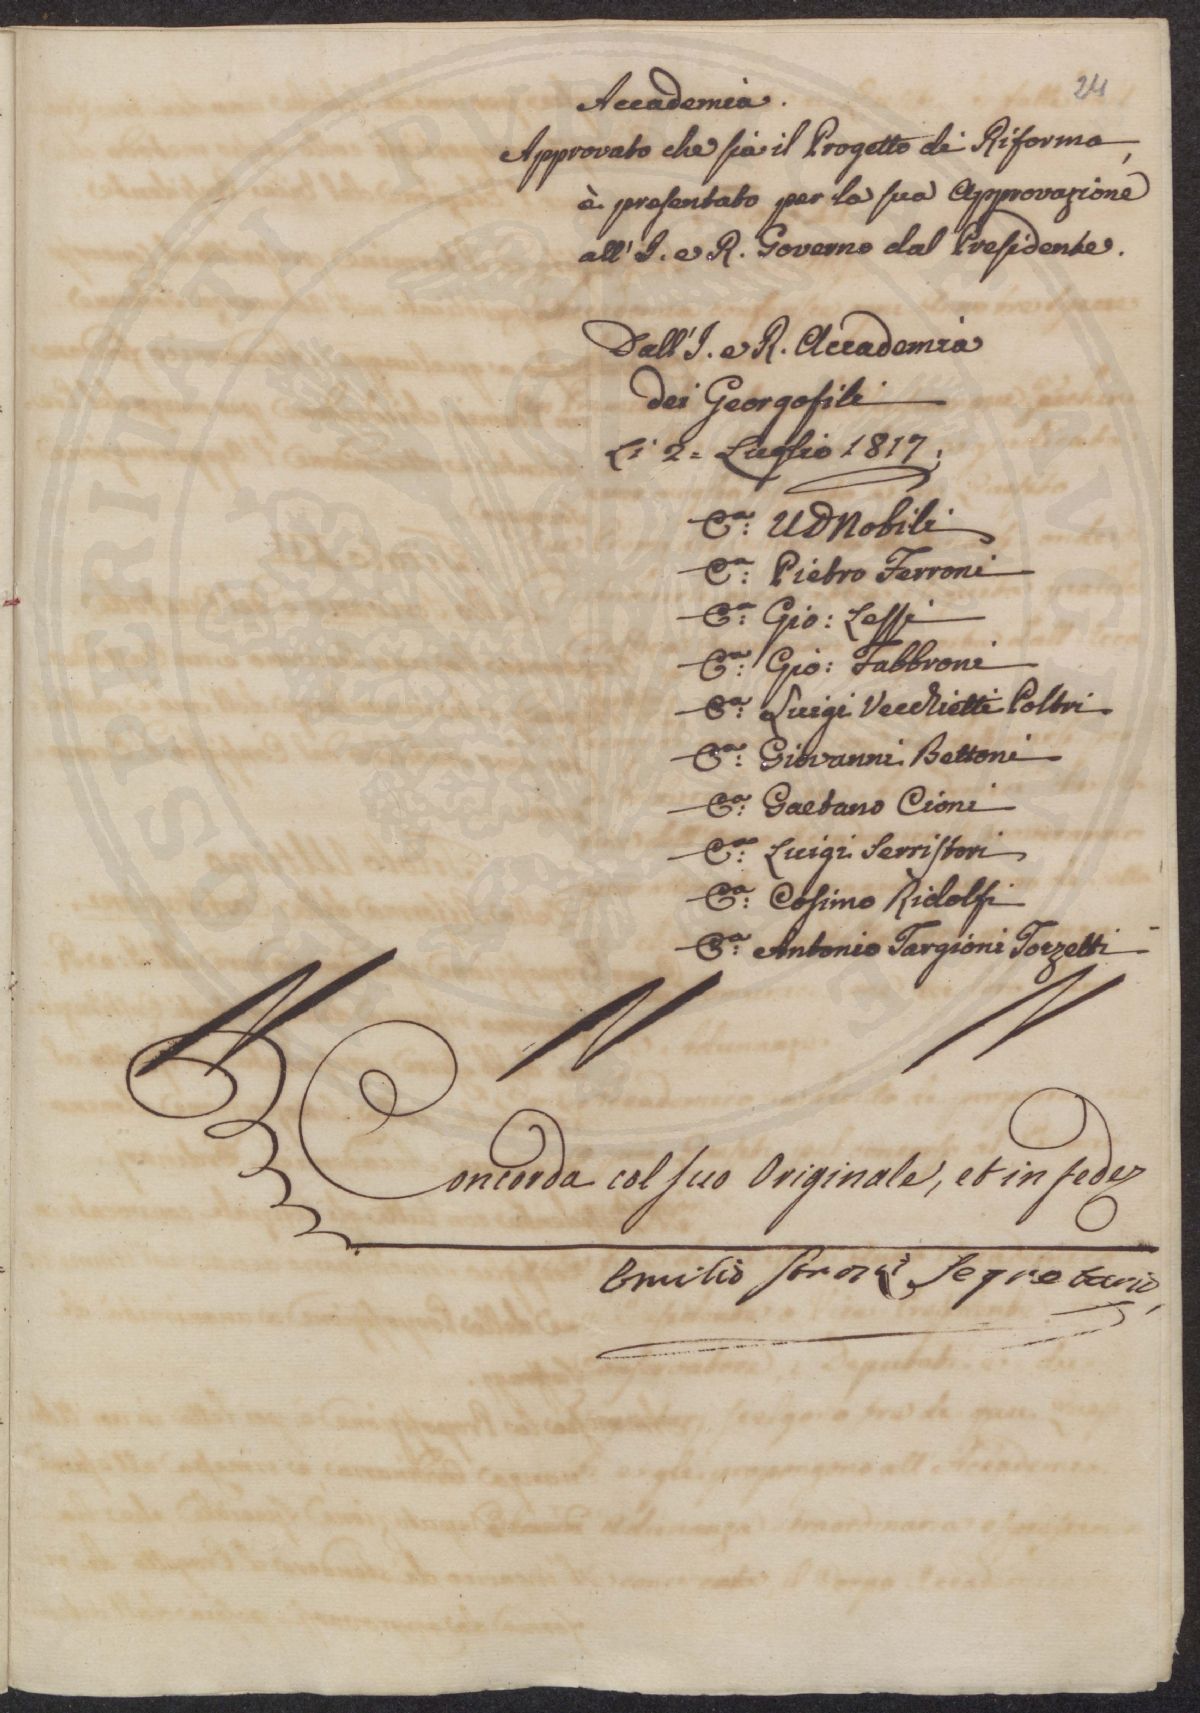 24
Accademia.
Approvato che sia il Progetto di Riforma,
è presentato per la sua Approvazione
all' I. e R. Governo dal Presidente.
Dall' I. e R. Accademia
dei Georgofili
Li 2= Luglio 1817.
Ca: UDNobili
Ca: Pietro Ferroni
Ca: Gio: Lessi
Ca: Gio: Fabbroni
Ca: Luigi Vecchietti Poltri
Ca: Giovanni Bettoni
Ca: Gaetano Cioni
Ca: Luigi Serristori
Ca: Cosimo Ridolfi
Ca: Antonio Targioni Tozzetti
Concorda col suo Originale, et in fede
Emilio Strozzi Segretario